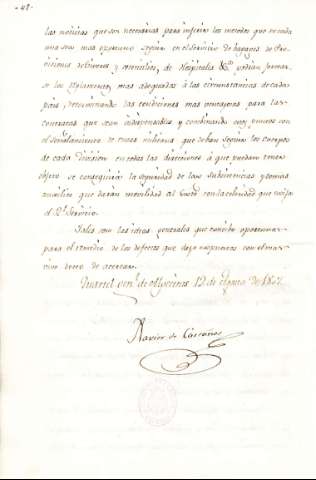 48.
las noticias que son necesarias para inferir los metodos que en cada
una sea mas oportuno seguir en el servicio de bagages de Pro-
visiones de viveres y utensilios, de Hospitales &.ª podrian formar-
se los reglamentos mas adequados á las circunstancias de cada
pais, determinando las condiciones mas ventajosas para las
contratas que sean indispensables y combinando
el señalamiento de rutas militares que deban seguir los cuerpos
de cada Division en todas las direcciones á que puedan tener
objeto se conseguirá la seguridad de las subsistencias y demas
auxilios que darán movilidad al con la celeridad que exija
el R.l Servicio.
Tales son las ideas generales que concibo oportunas
para el remedio de los defectos que dejo expuestos con el mas
vivo deseo de acertar.
Quartel gen.l de 12 de de
Xavier de Castaños